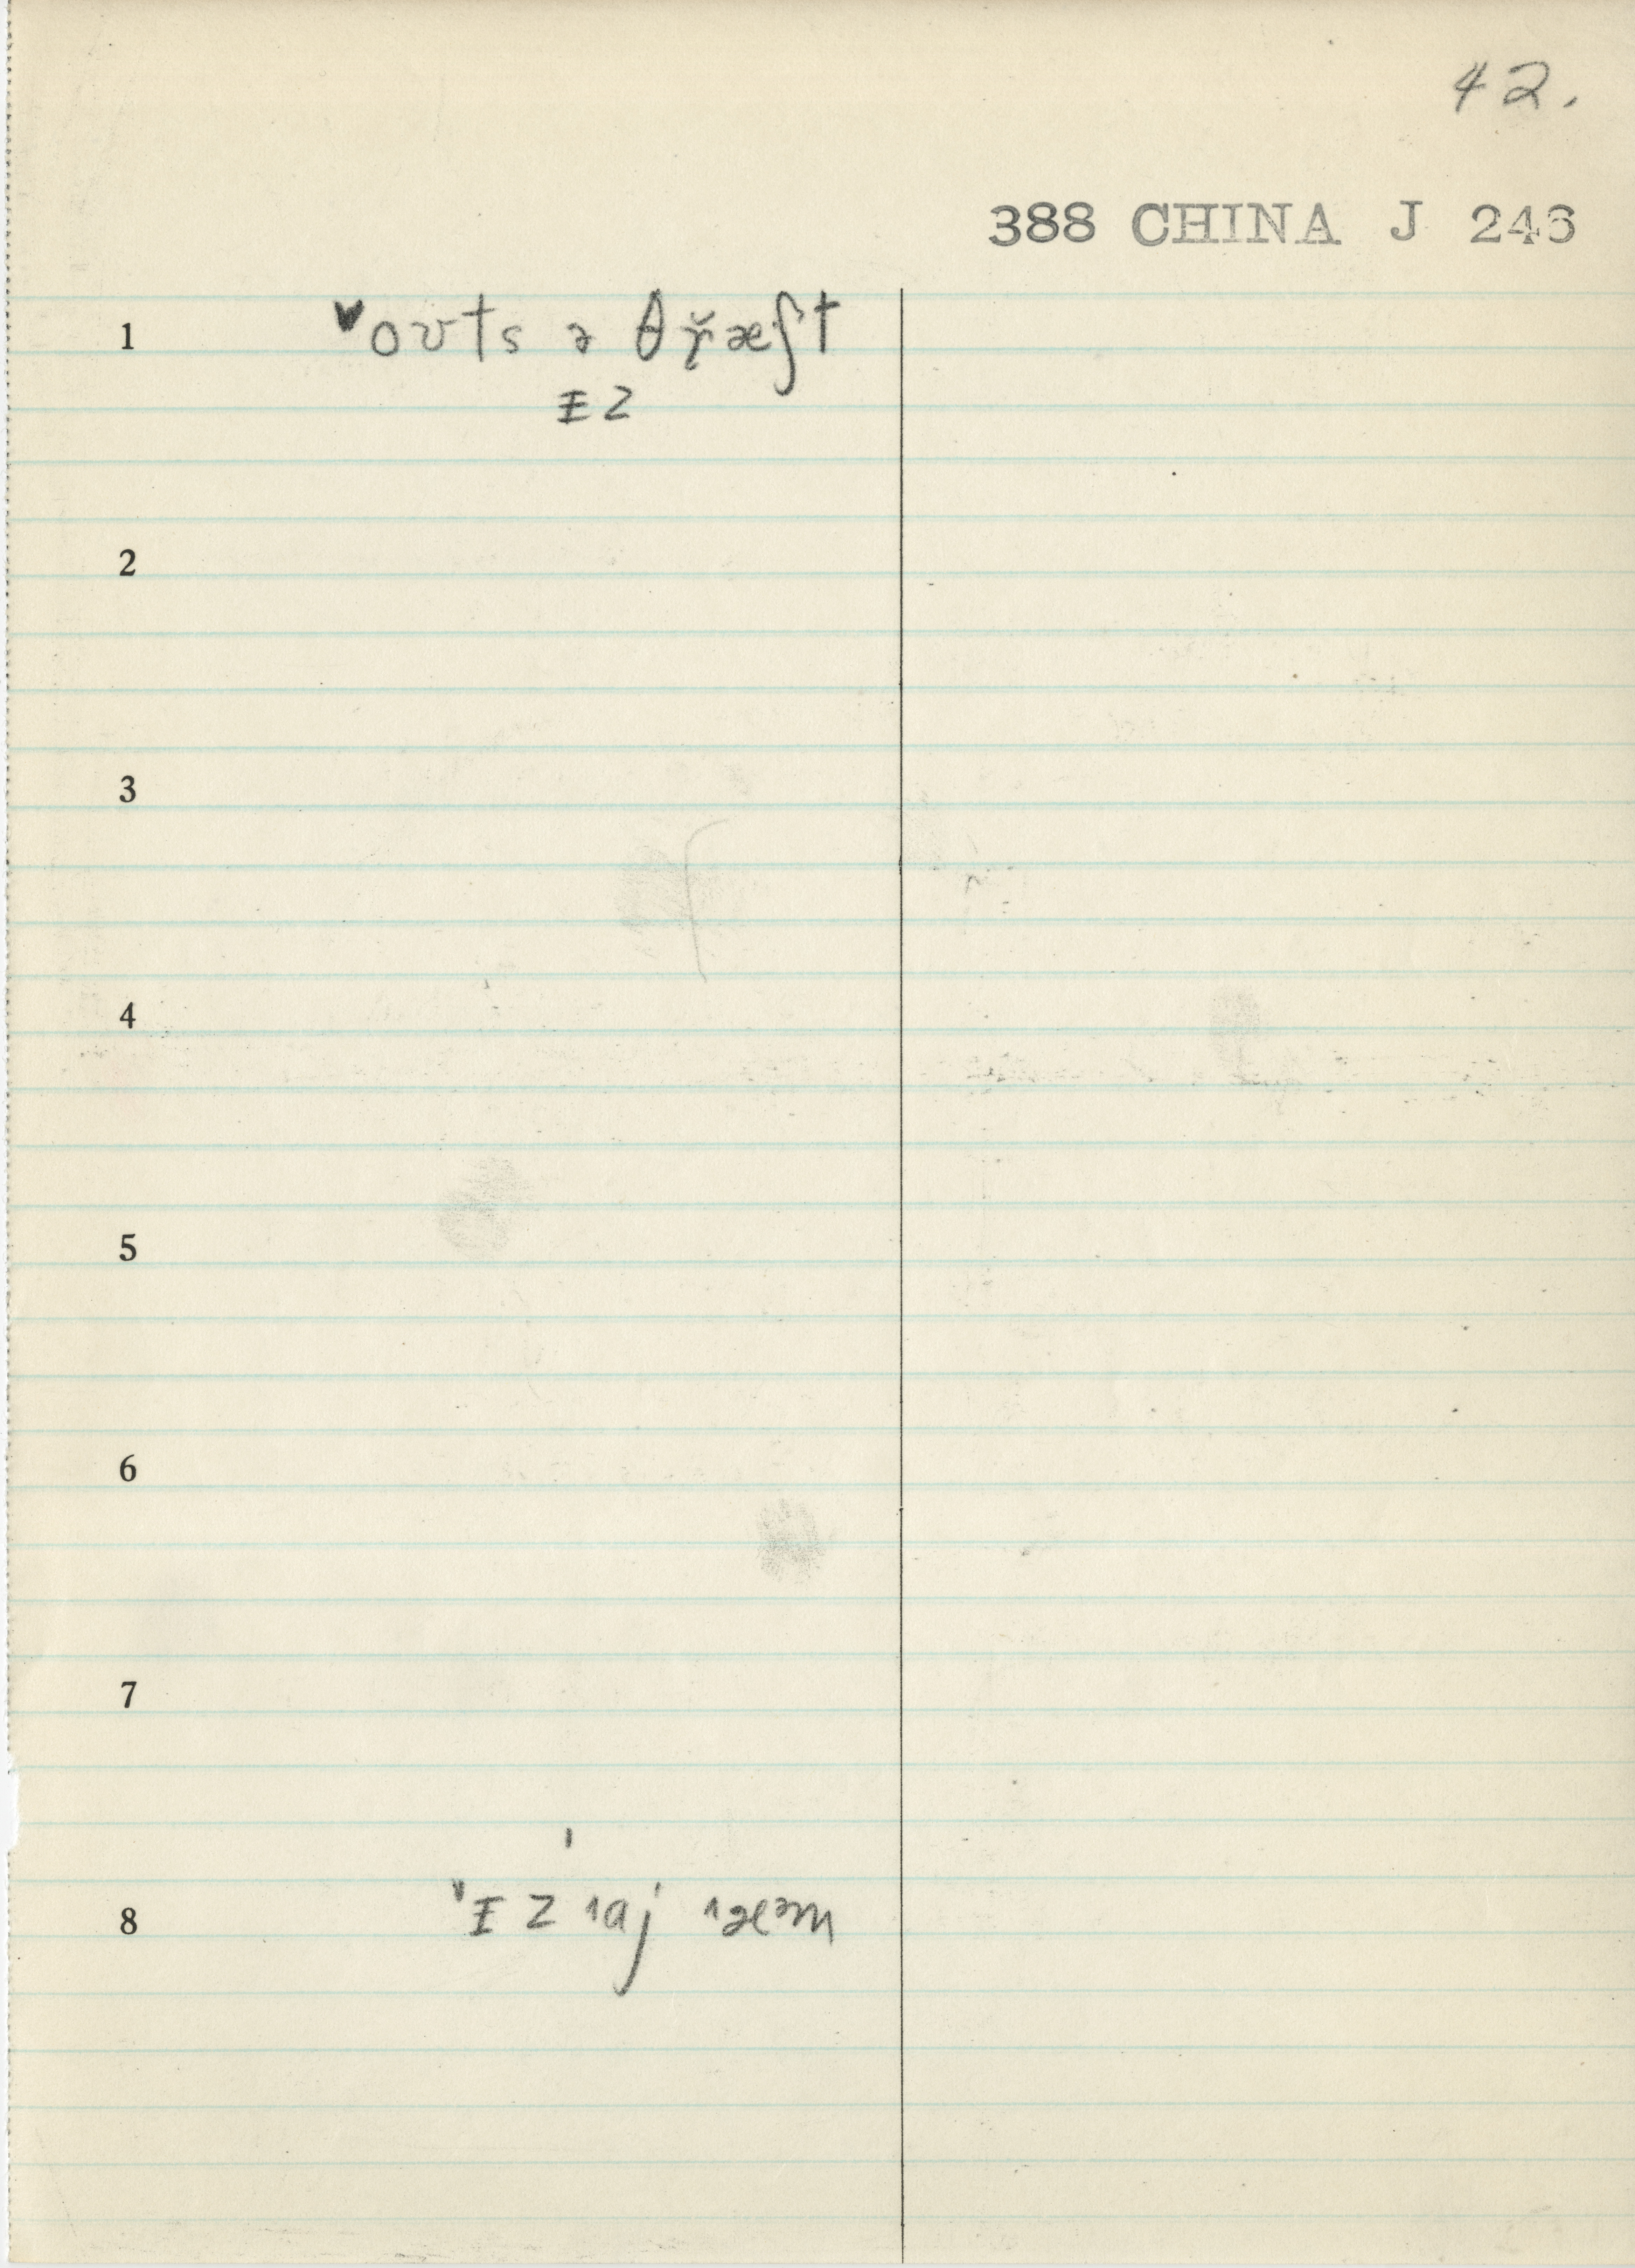 42.
388 CHINA J 246
1 ˅oʊts ə θř̥æʃt
ɪz
2
3
4
5
6
7
8 ˅ɪz ˄aj ˄æᵊm